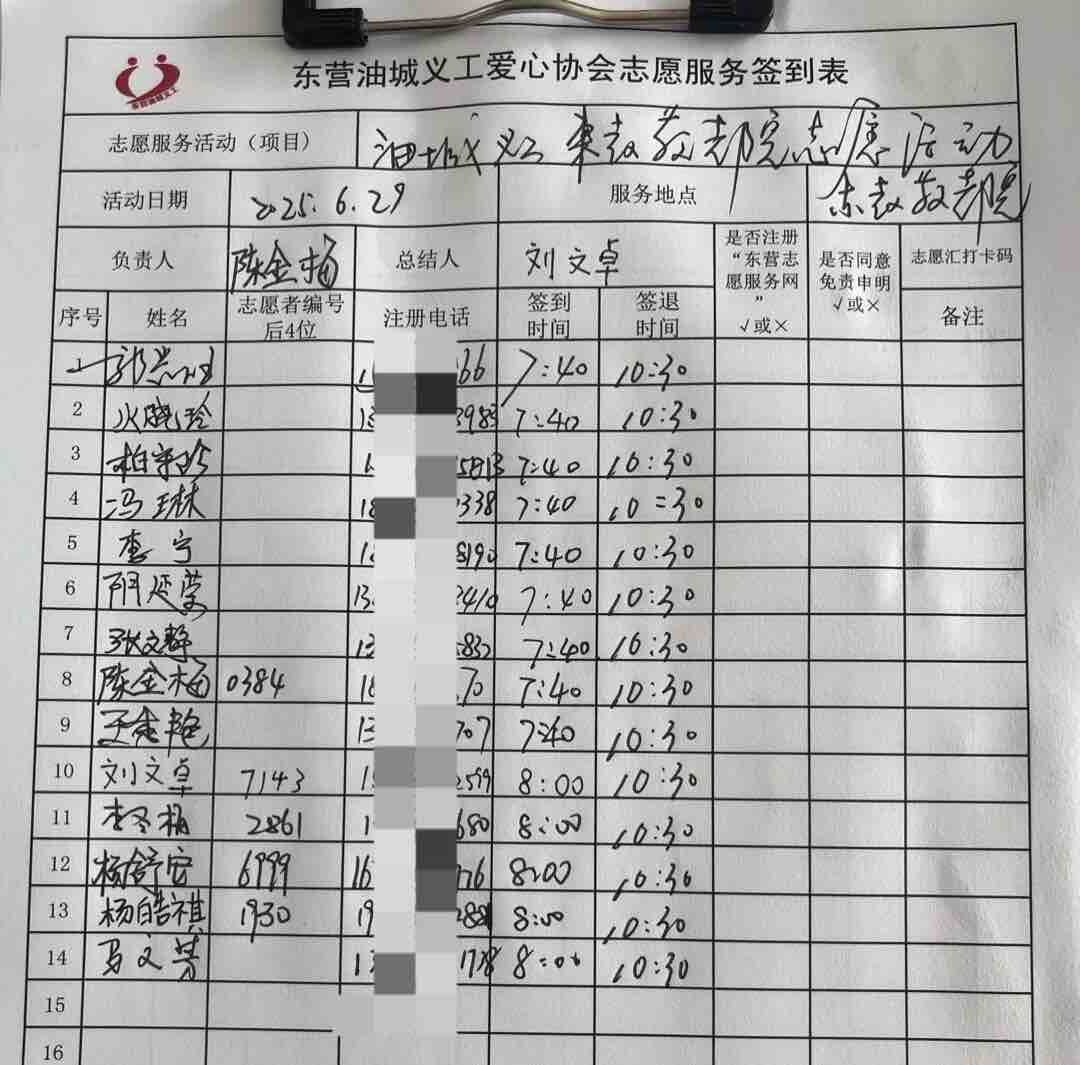 东营油城义工
东营油城义工爱心协会志愿服务签到表
志愿服务活动（项目） 油城义工 敬 院志愿活动
活动日期 2025.6.29 服务地点 敬 院
负责人 陈金梅 总结人 刘文卓 是否注册“东营志愿服务网” √或× 是否同意免责申明 √或× 志愿汇打卡码
序号 姓名 志愿者编号后4位 注册电话 签到时间 签退时间 备注
1 郭 66 7:40 10:30
2 火晓玲 13 3983 7:40 10:30
3 柏 珍 1 5813 7:40 10:30
4 冯琳 18 338 7:40 10:30
5 李宁 1 8190 7:40 10:30
6 阴延莹 13 2410 7:40 10:30
7 张文静 13 832 7:40 10:30
8 陈金梅 0384 18 70 7:40 10:30
9 王 艳 13 707 7:40 10:30
10 刘文卓 7143 1 2599 8:00 10:30
11 李冬梅 2861 1 680 8:00 10:30
12 杨舒安 6999 16 76 8:00 10:30
13 杨皓祺 1930 19 288 8:00 10:30
14 马文芳 1 1728 8:00 10:30
15
16